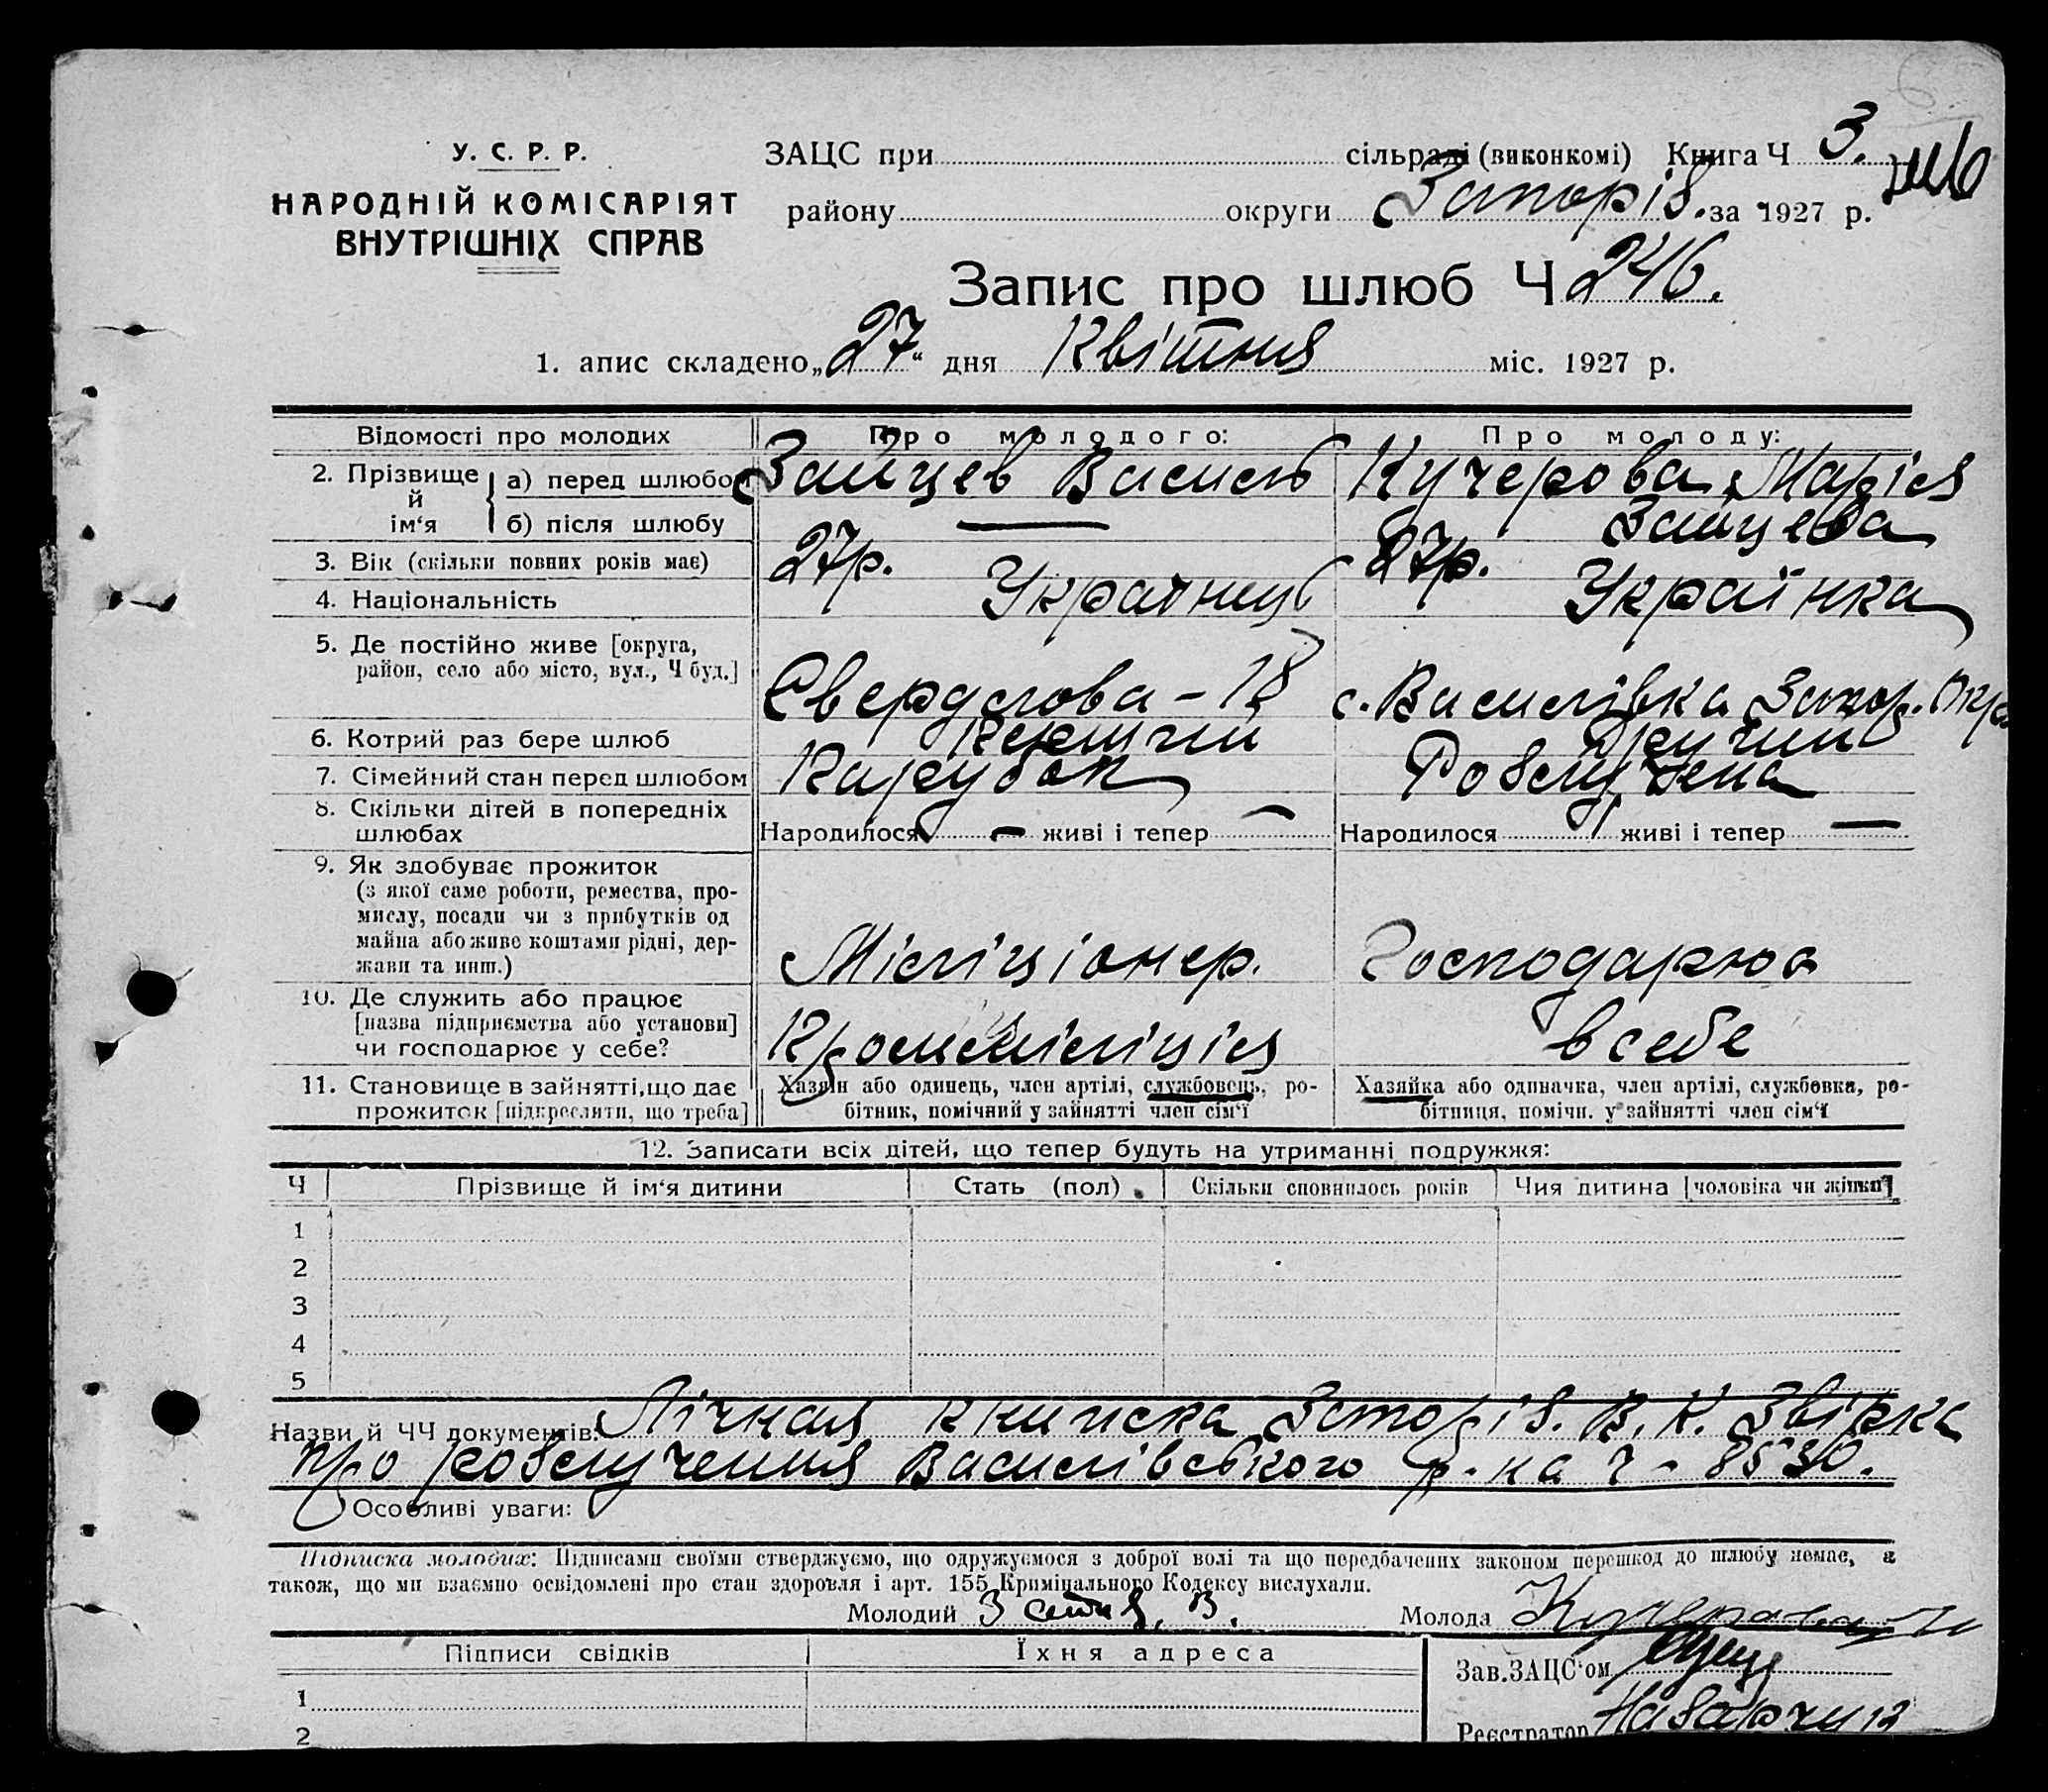 У. С. Р. Р.
НАРОДНІЙ КОМІСАРІЯТ
ВНУТРІШНІХ СПРАВ
ЗАЦС при сільраді (виконкомі) Книга Ч 3.
району округи Запоріз. за 1927 р.
Запис про шлюб Ч 246.
1. апис складено „27“ дня Квітня міс. 1927 р.
Відомості про молодих Про молодого: Про молоду:
2. Прізвище й ім‘я а) перед шлюбо Зайцев Василь Кучерова Марія
б) після шлюбу — Зайцева
3. Вік (скільки повних років має) 27р. 27р.
4. Національність Українець Українка
5. Де постійно живе [округа, район, село або місто, вул., Ч буд.] Свердлова - 18 с. Василівка Запор. Окр.
6. Котрий раз бере шлюб Другий
7. Сімейний стан перед шлюбом Парубок Розлучена
8. Скільки дітей в попередніх шлюбах Народилося — живі і тепер — Народилося живі і тепер —
9. Як здобуває прожиток
(з якої саме роботи, ремества, про-
мислу, посади чи з прибутків од
майна або живе коштами рідні, дер-
жави та инш.) Міліціонер. Господарює
10. Де служить або працює
[назва підприємства або установи]
чи господарює у себе? в себе
11. Становище в зайнятті, що дає
прожиток [підкреслити, що треба]
Хазяїн або одинець, член артілі, службовець, ро-
бітник, помічний у зайнятті член сім‘ї
Хазяйка або одиначка, член артілі, службовка, ро-
бітниця, помічн. у зайнятті член сім‘ї
12. Записати всіх дітей, що тепер будуть на утриманні подружжя:
Ч Прізвище й ім‘я дитини Стать (пол) Скільки сповнилось років Чия дитина [чоловіка чи жінки]
1
2
3
4
5
Назви й ЧЧ документів: Лічная книжка Запоріз. В. К. Звірка
про розлучення Василівського р-ка ч - 8530.
Особливі уваги:
Підписка молодих: Підписами своїми стверджуємо, що одружуємося з доброї волі та що передбачених законом перешкод до шлюбу немає, а
також, що ми взаємно освідомлені про стан здоровля і арт. 155 Кримінального Кодексу вислухали.
Молодий Молода Кучерова
Підписи свідків Їхня адреса
Зав. ЗАЦС‘ом
1
Реєстратор
2